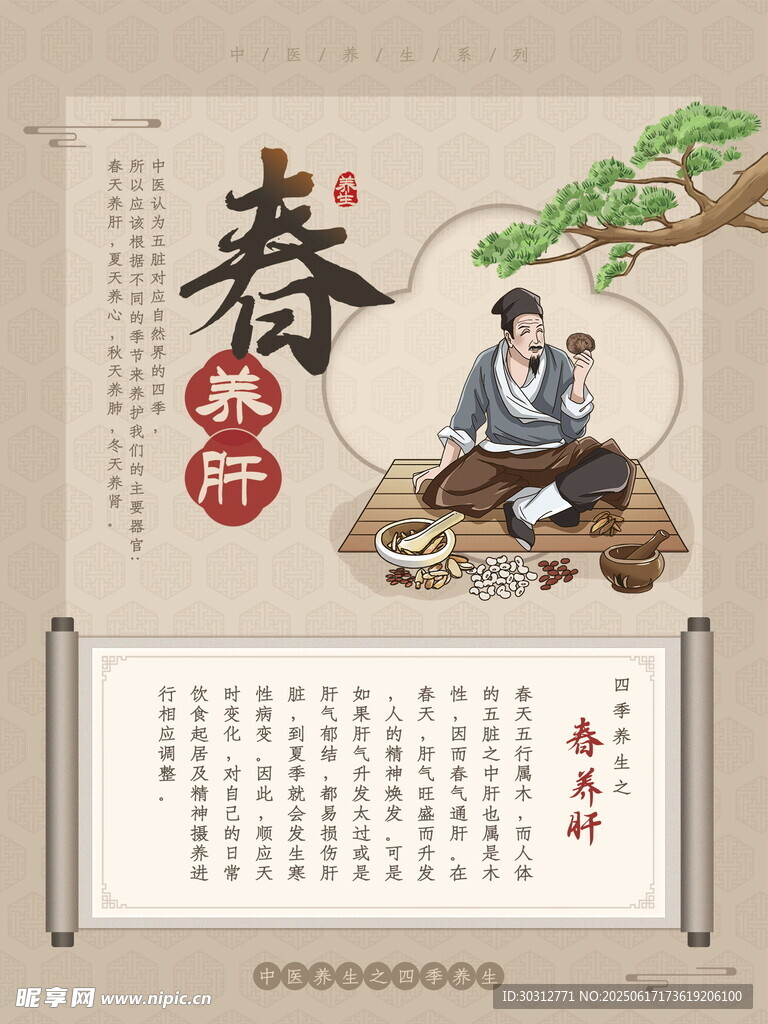 中/医/养/生/系/列
春
养生
养
肝
中医认为五脏对应自然界的四季，
所以应该根据不同的季节来养护我们的主要器官：
春天养肝，夏天养心，秋天养肺，冬天养肾。
四季养生之
春养肝
春天五行属木，而人体
的五脏之中肝也属是木
性，因而春气通肝。在
春天，肝气旺盛而升发
，人的精神焕发。可是
如果肝气升发太过或是
肝气郁结，都易损伤肝
脏，到夏季就会发生寒
性病变。因此，顺应天
时变化，对自己的日常
饮食起居及精神摄养进
行相应调整。
中医养生之四季养生
昵享网 www.nipic.cn
ID:30312771 NO:20250617173619206100